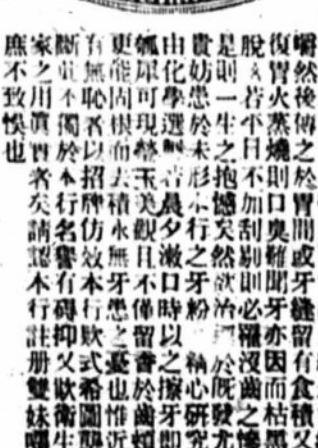 嚼然後傳之於胃間或牙縫留有食積又
復胃火蒸燒則口臭難聞牙亦因而枯黑
脫落若平日不加刮剔則必罹沒齒之慘
是則一生之抱憾矣然欲治於既發尤
貴妨患於未形小行之牙粉精心研究
由化學選製若晨夕漱口時以之擦牙即
瓠犀可現瑩玉美觀且不僅留香於齒頰
更能固根而去積永無牙患之憂也惟近
有無恥者以招牌仿效本行款式希圖襲
斷此不獨於本行名譽有碍抑又欺衛生
家之用真買者矣請認本行註册雙妹嘜
庶不致悞也